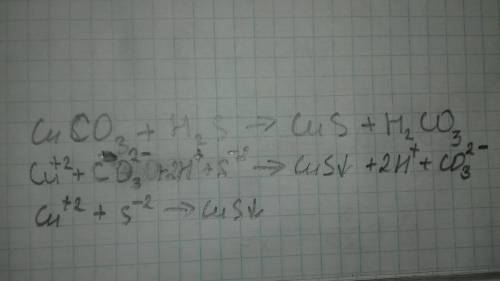 CuCO₃ + H₂S → CuS + H₂CO₃
Cu⁺² + CO₃²⁻ + 2H⁺ + S⁻² → CuS↓ + 2H⁺ + CO₃²⁻
Cu⁺² + S⁻² → CuS↓